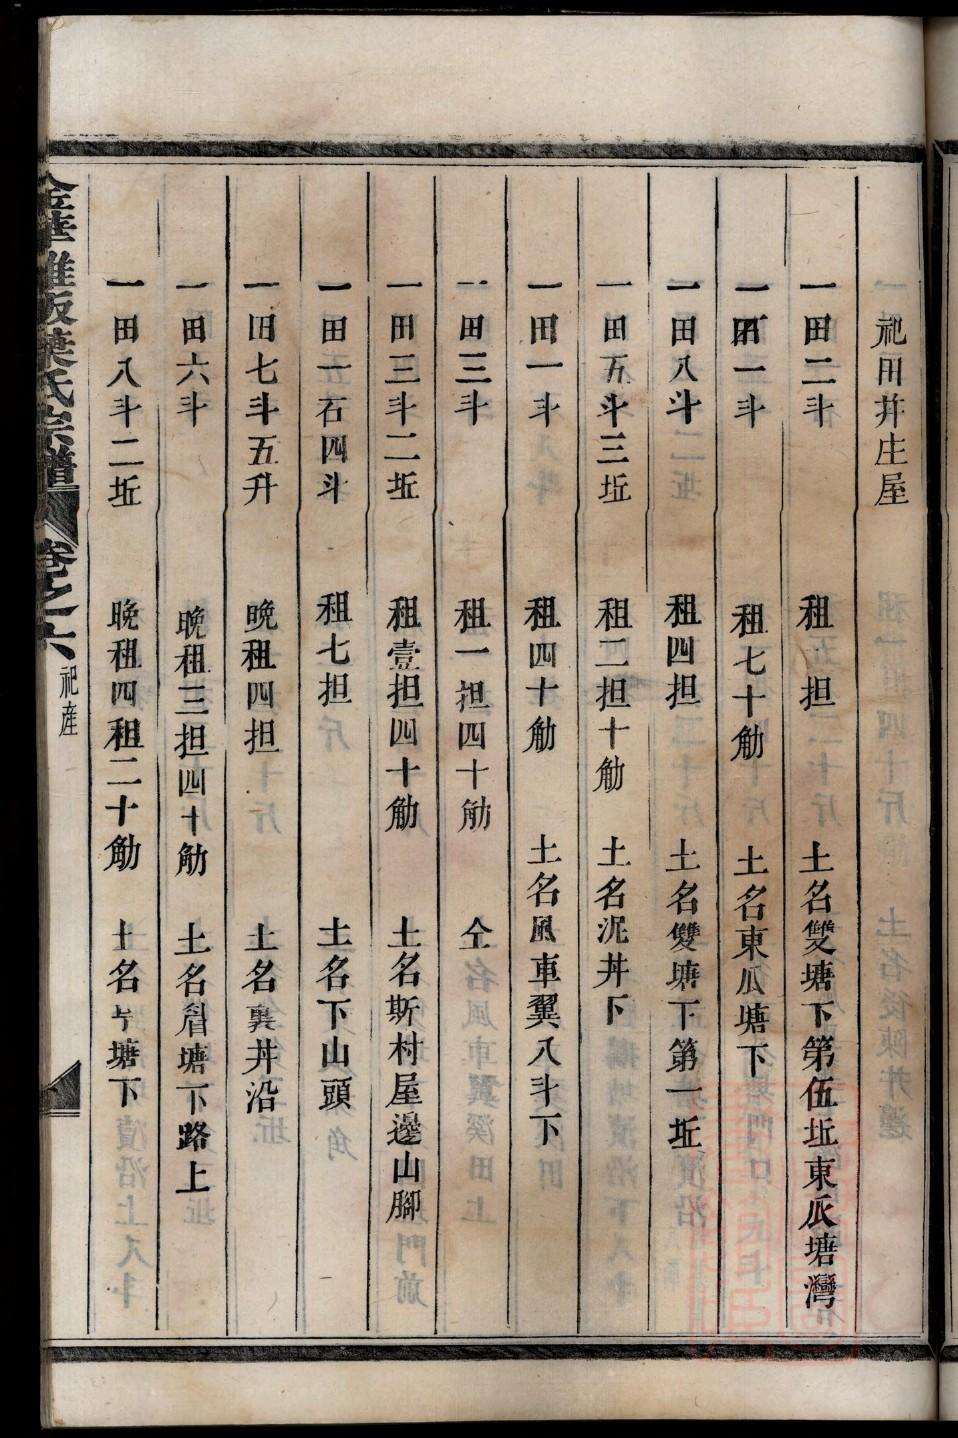 一祀田幷庄屋
一田二斗 租五担 土名雙塘下第伍坵東瓜塘灣
一田一斗 租七十觔 土名東瓜塘下
一田八斗 租四担 土名雙塘下第一坵
一田五斗三坵 租二担十觔 土名泥丼下
一田一斗 租四十觔 土名風車翼八斗下
一田三斗 租一担四十觔 仝
一田三斗二坵 租壹担四十觔 土名斯村屋邊山腳
一田一石四斗 租七担 土名下山頭
一田七斗五升 晚租四担 土名裏丼沿
一田六斗 晚租三担四十觔 土名塘下路上
一田八斗二坵 晚租四租二十觔 土名塘下
金華雅畈葉氏宗譜 卷之六 祀產